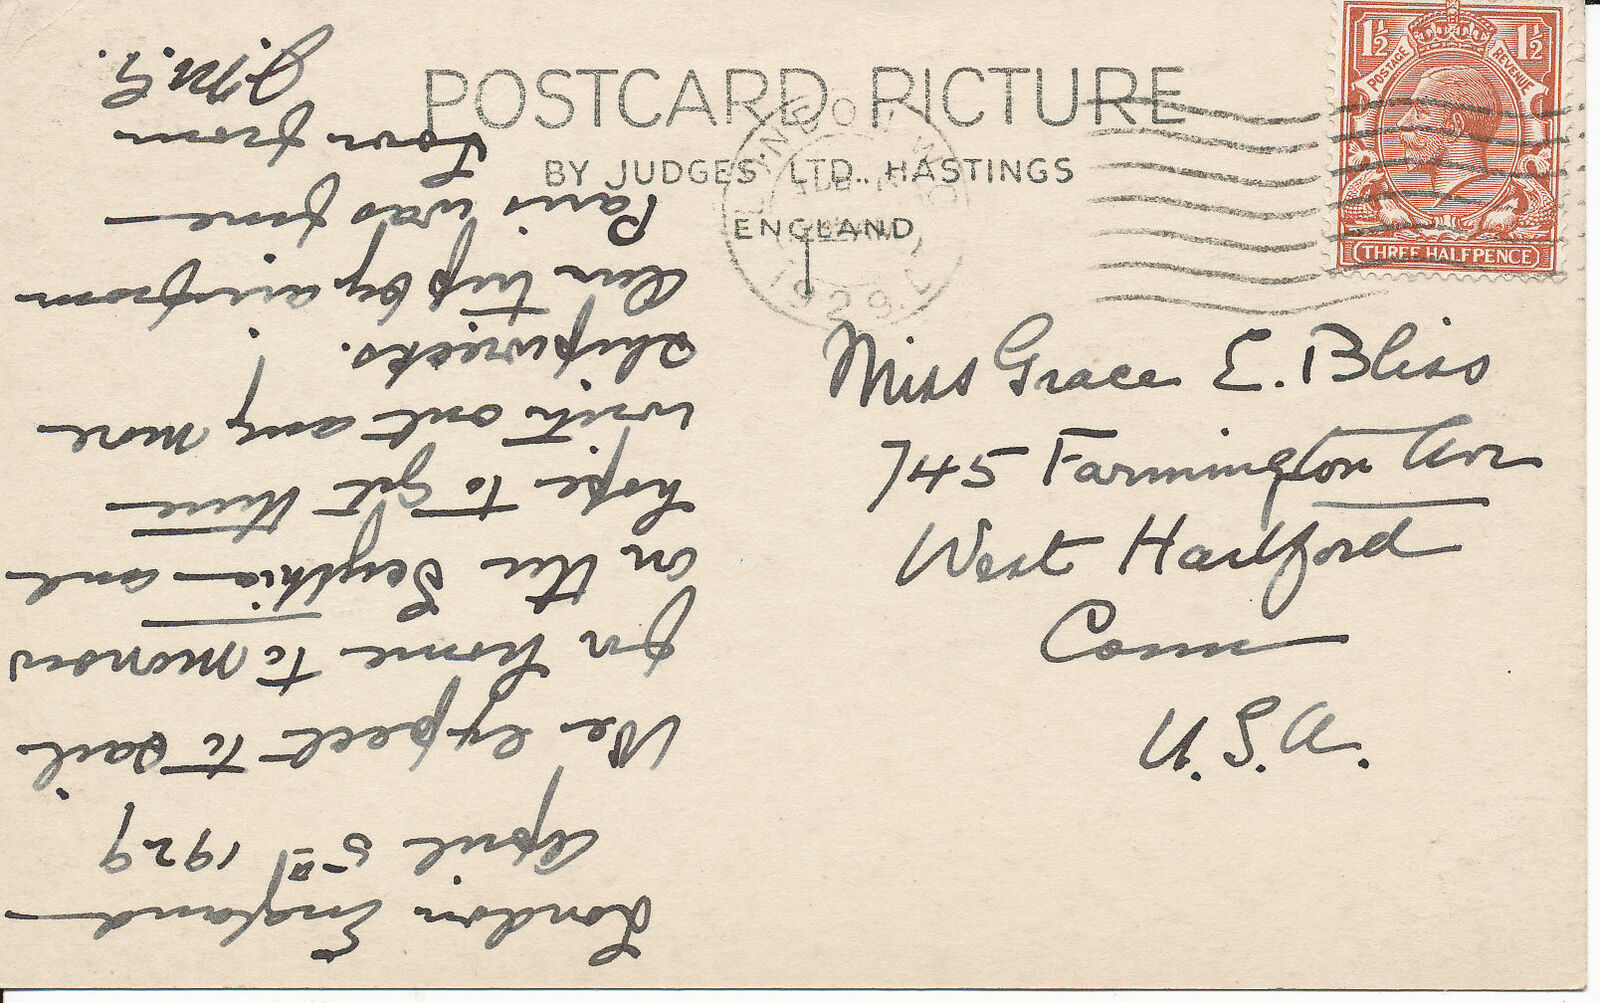 POSTCARD PICTURE
BY JUDGES LTD., HASTINGS
ENGLAND
1½ 1½
POSTAGE REVENUE
THREE HALFPENCE
LONDON W.
1929
Miss Grace E. Bliss
745 Farmington Ave
West Hartford
Conn
U.S.A.
London England
April 5th 1929
We expect to sail
for home to morrow
on the Scythia and
hope to get there
with out any more
shipwrecks.
Our trip by air from
Paris was fine
Love from
J.M.G.